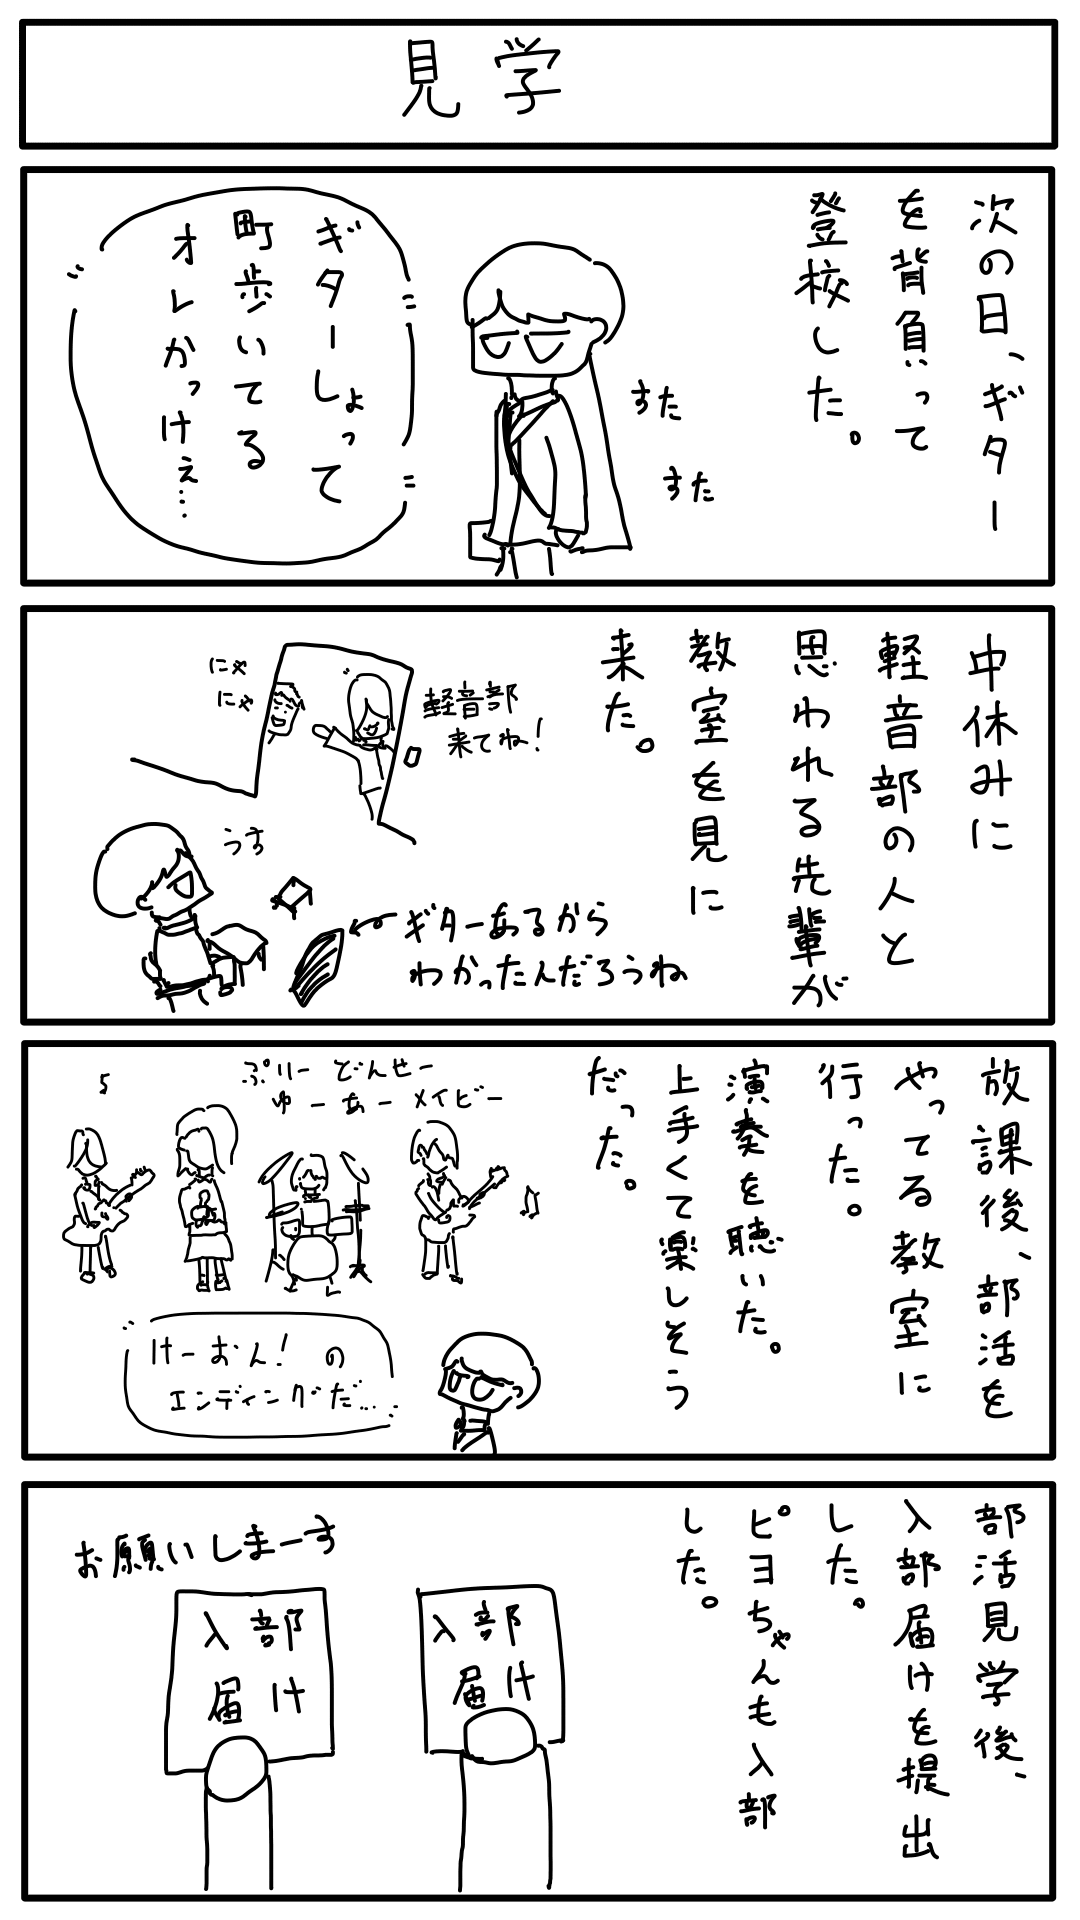 見学
次の日、ギター
を背負って
登校した。
すた
すた
ギターしょって
町歩いてる
オレかっけぇ…
中休みに
軽音部の人と
思われる先輩が
教室を見に
来た。
軽音部
来てね!
にゃ
にゃ
うす
ギターあるから
わかったんだろうね
放課後、部活を
やってる教室に
行った。
演奏を聴いた。
上手くて楽しそう
だった。
ぷりー どんせー
ゆーあーメイビー
けーおん!の
エンディングだ…
部活見学後、
入部届けを提出
した。
ピヨちゃんも入部
した。
お願いしまーす
入部
届け
入部
届け